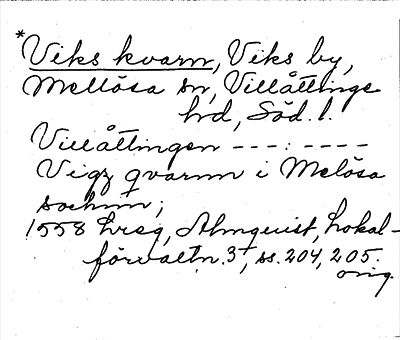 *Viks kvarn, Viks by,
Mellösa sn, Villåttinge
hd, Söd. l.
Villåttingen - - - : - - - -
Vigz qvarnn i Melösa
sochnn;
1558 hrsg, Almquist, Lokal-
förvaltn. 3, ss. 204, 205.
orig.